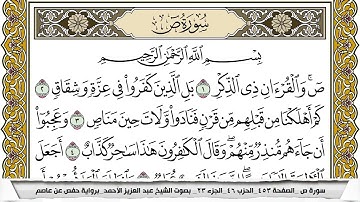 سُورَةُ صٓ
بِسْمِ ٱللَّهِ ٱلرَّحْمَٰنِ ٱلرَّحِيمِ
صٓۚ وَٱلْقُرْءَانِ ذِى ٱلذِّكْرِ ١ بَلِ ٱلَّذِينَ كَفَرُوا۟ فِى عِزَّةٍ وَشِقَاقٍ ٢
كَمْ أَهْلَكْنَا مِن قَبْلِهِم مِّن قَرْنٍ فَنَادَوا۟ وَّلَاتَ حِينَ مَنَاصٍ ٣ وَعَجِبُوٓا۟
أَن جَآءَهُم مُّنذِرٌ مِّنْهُمْۖ وَقَالَ ٱلْكَٰفِرُونَ هَٰذَا سَٰحِرٌ كَذَّابٌ ٤ أَجَعَلَ
سورة ص _ الصفحة ٤٥٣ _ الحزب ٤٦ _ الجزء ٢٣ _ بصوت الشيخ عبد العزيز الأحمد_ برواية حفص عن عاصم